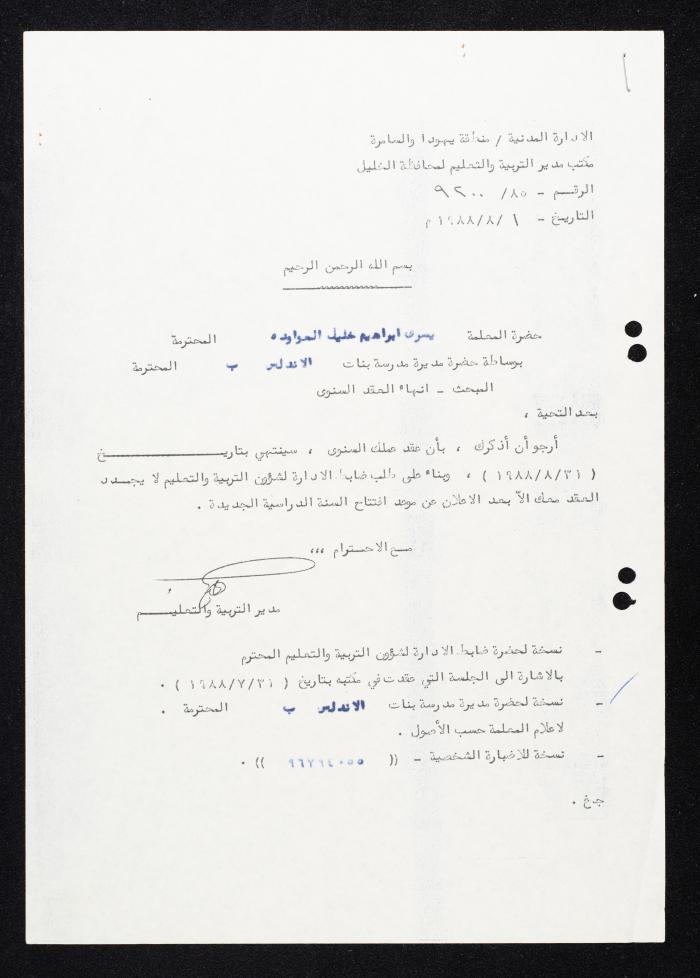 الادارة المدنية / منطقة يهودا والسامرة
مكتب مدير التربية والتعليم لمحافظة الخليل
الرقم - ٨٥/ ٩٢٠٠
التاريخ - ١ /١٩٨٨/٨ م
بسم الله الرحمن الرحيم
حضرة المعلمة يسرى ابراهيم خليل العواوده المحترمة
بوساطة حضرة مديرة مدرسة بنات الاندلس ب المحترمة
المبحث - انهاء العقد السنوى
بعد التحية ،
أرجو أن أذكرك ، بأن عقد عملك السنوى ، سينتهي بتاريخ
( ١٩٨٨/٨/٣١ ) ، وبناء على طلب ضابط الادارة لشؤون التربية والتعليم لا يجدد
العقد معك الاّ بعد الاعلان عن موعد افتتاح السنة الدراسية الجديدة .
مع الاحترام ،،،
مدير التربية والتعليم
- نسخة لحضرة ضابط الادارة لشؤون التربية والتعليم المحترم
بالاشارة الى الجلسة التي عقدت في مكتبه بتاريخ ( ١٩٨٨/٧/٣١ ) .
- نسخة لحضرة مديرة مدرسة بنات الاندلس ب المحترمة .
لاعلام المعلمة حسب الأصول .
- نسخة للاضبارة الشخصية - (( ٩٦٧٩٤٠٥٥ )) .
ج.خ .